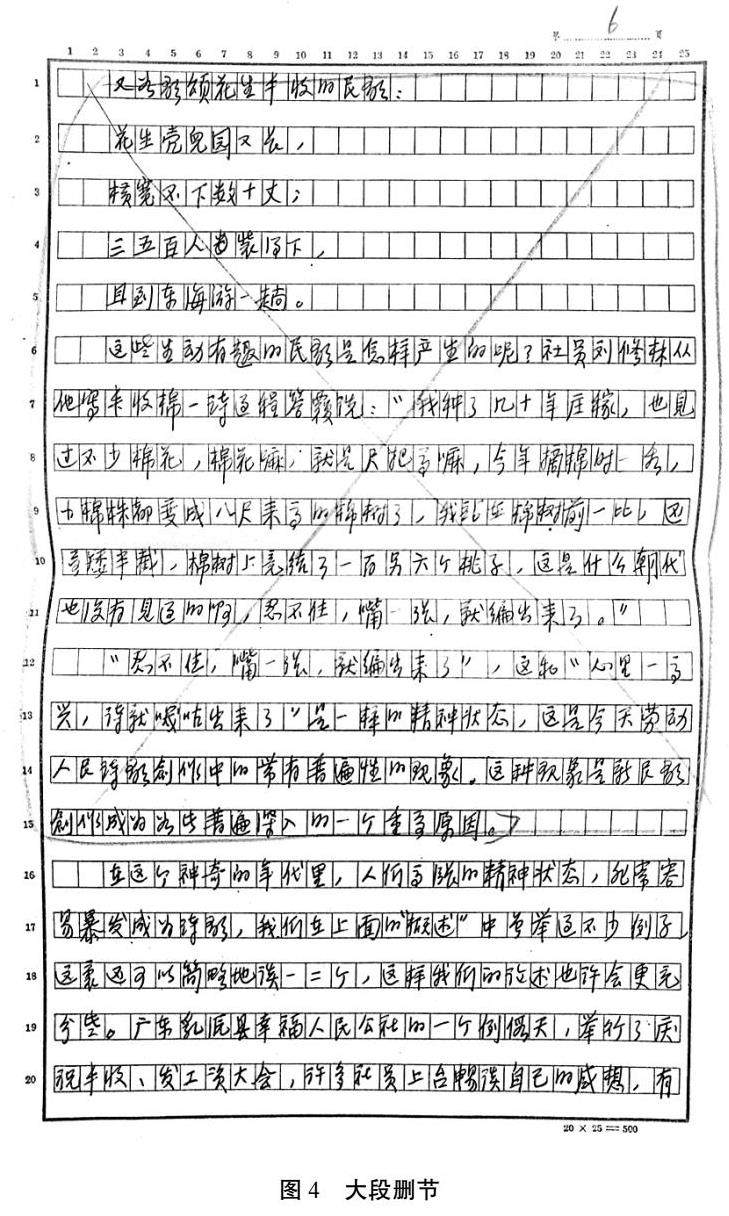 第 6 页
1 2 3 4 5 6 7 8 9 10 11 12 13 14 15 16 17 18 19 20 21 22 23 24 25
1 又如歌颂花生丰收的民歌：
2 花生壳兒园又长，
3 横宽不下数十丈；
4 三五百人装得下，
5 且到东海游一趟。
6 这些生动有趣的民歌是怎样产生的呢？社员刘修林从
7 他写丰收棉一诗过程答覆说："我种了几十年庄稼，也見
8 过不少棉花，棉花嘛，就是尺把高嘛，今年摘棉时一看，
9 小棉株都变成八尺来高的棉树了，我站在棉树前一比，还
10 要矮半截，棉树上竟结了一百另六个桃子，这是什么朝代
11 也没有見过的啊，忍不住，嘴一张，就编出来了。"
12 "忍不住，嘴一张，就编出来了"，这和"心里一高
13 兴，诗就咕出来了"是一样的精神状态，这是今天劳动
14 人民詩歌創作中的带有普遍性的现象。这种现象是新民歌
15 創作成为如此普遍深入的一个重要原因。
16 在这个神奇的年代里，人们高张的精神状态，非常容
17 易暴发成为詩歌，我们在上面的"概述"中曾举过不少例子，
18 这里还可以简略地谈一二个，这样我们的论述也许会更充
19 分些。广东乳源县幸福人民公社的一个例假天，举行了庆
20 祝丰收、发工资大会，许多社员上台畅谈自己的感想，有
20 × 25 = 500
图 4 大段删节